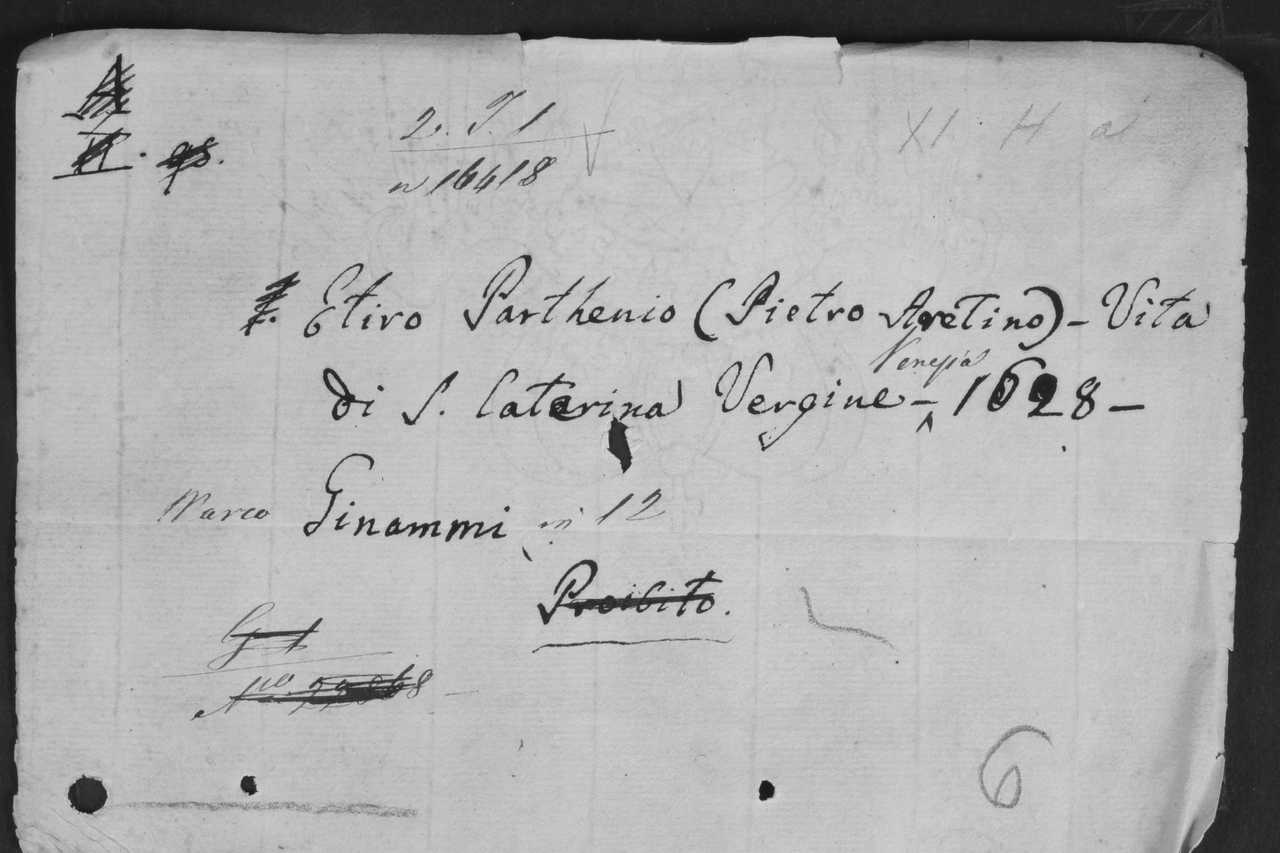 2. T. 1
XI H a
98.
n 16418
Etiro Parthenio (Pietro Aretino) - Vita
di S. Caterina Vergine - Venezia 1628 -
Marco Ginammi in 12
Proibito.
6